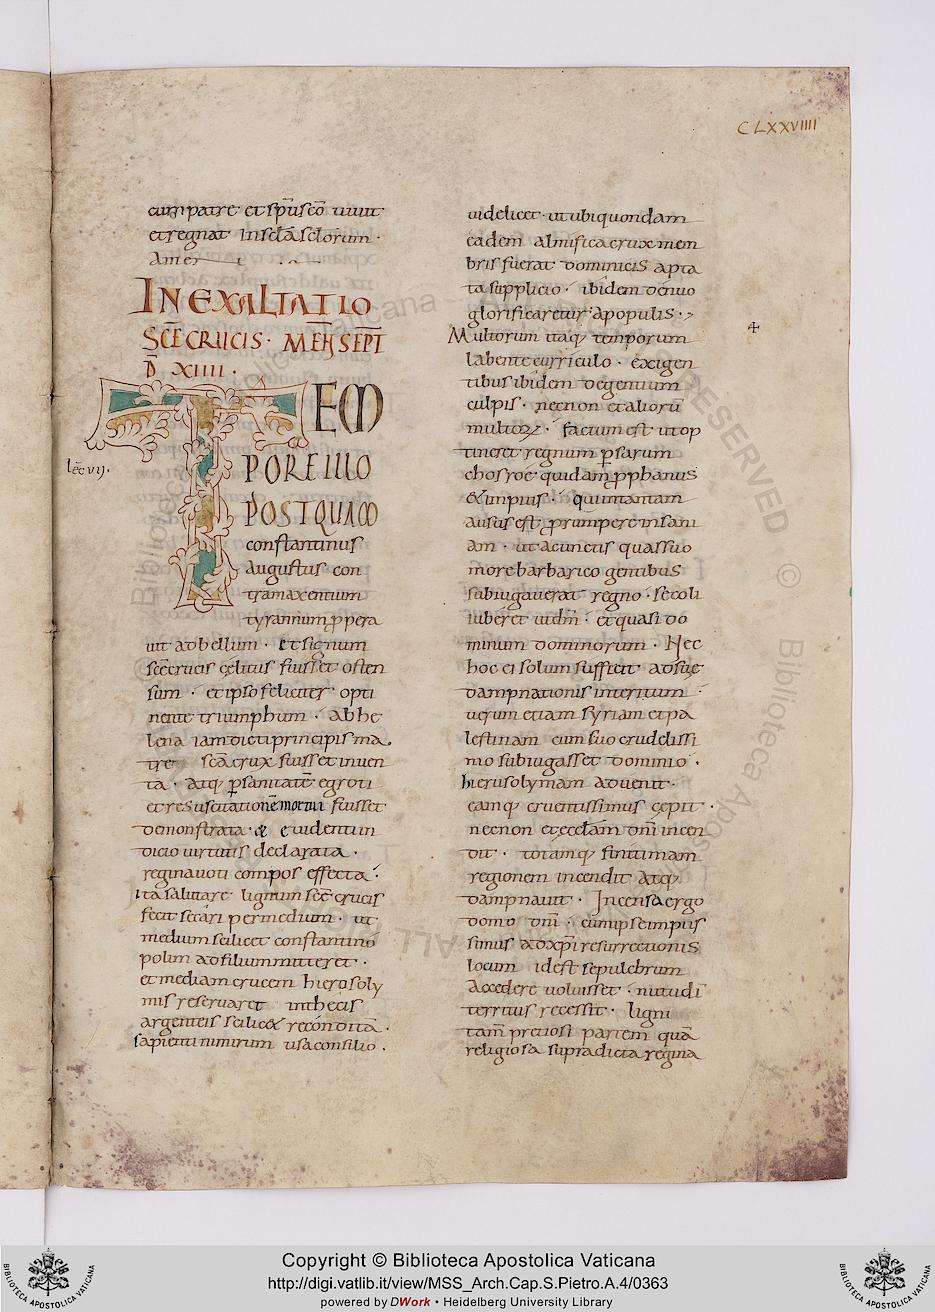 CLXXVIIII
cum patre et sp̄u sc̄o uiuit
et regnat in sc̄la sc̄lorum ·
amen
IN EXALTATIO
SC̄E CRUCIS · MEN̄ SEPT̄
D̄ XIIII ·
TEM
lec̄ vıj.
PORE ILLO
POSTQUAM
constantinus
augustus con
tra maxentium
tyrannum ꝓpera
uit ad bellum · et signum
sc̄e crucis cęlitus fuisset osten
sum · et ipso feliciter opti
nente triumphum · ab he
lena iam dicti principis ma
tre sc̄a crux fuisset inuen
ta · atq; ꝑ sanitatē egroti
et resuscitationē mortui fuisset
demonstrata · & euidenti in
dicio uirtutis declarata ·
regina uoti compos effecta ·
ita salutare lignum sc̄e crucis
fecit secari per medium · ut
medium scilicet constantino
polim ad filium mitteret ·
et mediam crucem hierosoly
mis reseruaret in thecis
argenteis scilic& reconditā ·
sapienti nimirum usa consilio ·
uidelicet · ut ubi quondam
eadem almifica crux mem
bris fuerat dominicis apta
ta supplicio · ibidem denuo
glorificaretur a populis ·
Multorum itaq; temporum
labente curriculo · exigen
tibus ibidem degentium
culpis · necnon et aliorū
multoꝝ · factum est ut op
tineret regnum ꝑsarum
chosroe quidam ꝓphanus
& impius · qui in tantam
ausus est ꝓrumpere insani
am · ut a cunctis quas suo
more barbarico gentibus
subiugauerat regno · se coli
iuberet ut dm̄ · et quasi do
minum dominorum · Nec
hoc ei solum suffecit ad suę
dampnationis interitum ·
uerum etiam syriam et pa
lestinam cum suo crudelissi
mo subiugasset dominio ·
hierusolymam aduenit ·
eamq; cruentissimus cępit ·
necnon et eccl̄am dn̄i incen
dit · totamq; finitimam
regionem incendit atq;
dampnauit · Incensa ergo
domo dn̄i · cum ipse impiis
simus ad xp̄i resurrectionis
locum id est sepulchrum
accedere uoluisset · nutu dī
territus recessit · ligni
tam̄ pretiosi partem quā
religiosa supradicta regina
Copyright © Biblioteca Apostolica Vaticana
http://digi.vatlib.it/view/MSS_Arch.Cap.S.Pietro.A.4/0363
powered by DWork • Heidelberg University Library